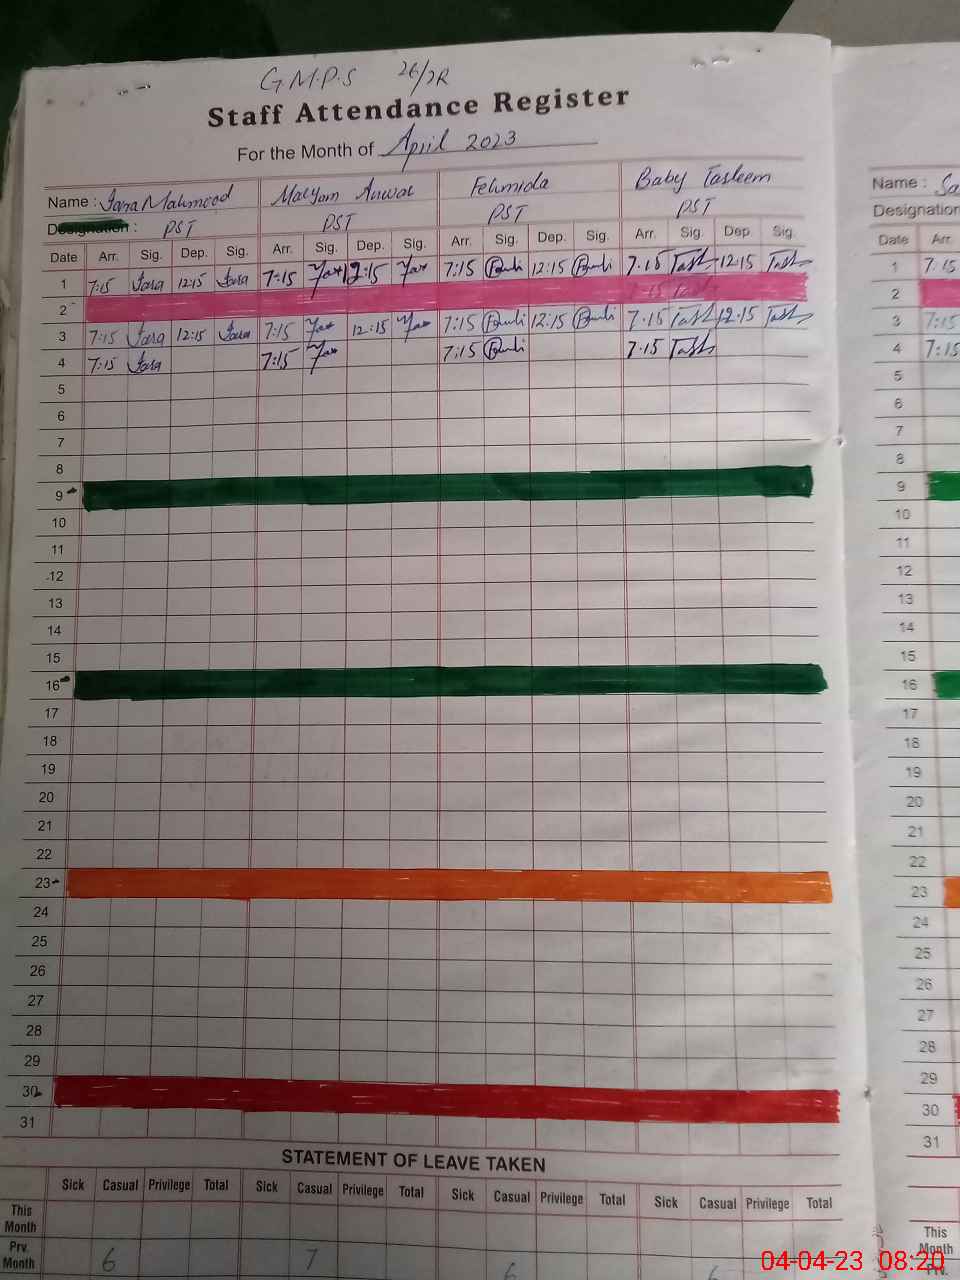 G.M.P.S 26/2R
Staff Attendance Register
For the Month of April 2023
Name : Isra Mahmood Maryam Anwar Fehmida Baby Tasleem Name : Sa
Designation : PST PST PST PST Designation
Date Arr. Sig. Dep. Sig. Arr. Sig. Dep. Sig. Arr. Sig. Dep. Sig. Arr. Sig. Dep. Sig. Date Arr.
1 7:15 12:15 7:15 12:15 7:15 12:15 7.15 Tash 12:15 Tash 1 7.15
2 7.15 Tash 2
3 7:15 12:15 7:15 12:15 7:15 12:15 7.15 Tash 12.15 Tash 3 7:15
4 7:15 7:15 7:15 7.15 Tash 4 7:15
5 5
6 6
7 7
8 8
9 9
10 10
11 11
12 12
13 13
14 14
15 15
16 16
17 17
18 18
19 19
20 20
21 21
22 22
23 23
24 24
25 25
26 26
27 27
28 28
29 29
30 30
31 31
STATEMENT OF LEAVE TAKEN
Sick Casual Privilege Total Sick Casual Privilege Total Sick Casual Privilege Total Sick Casual Privilege Total
This Month This Month
Prv. Month 6 7 6 6 Prv.
04-04-23 08:20